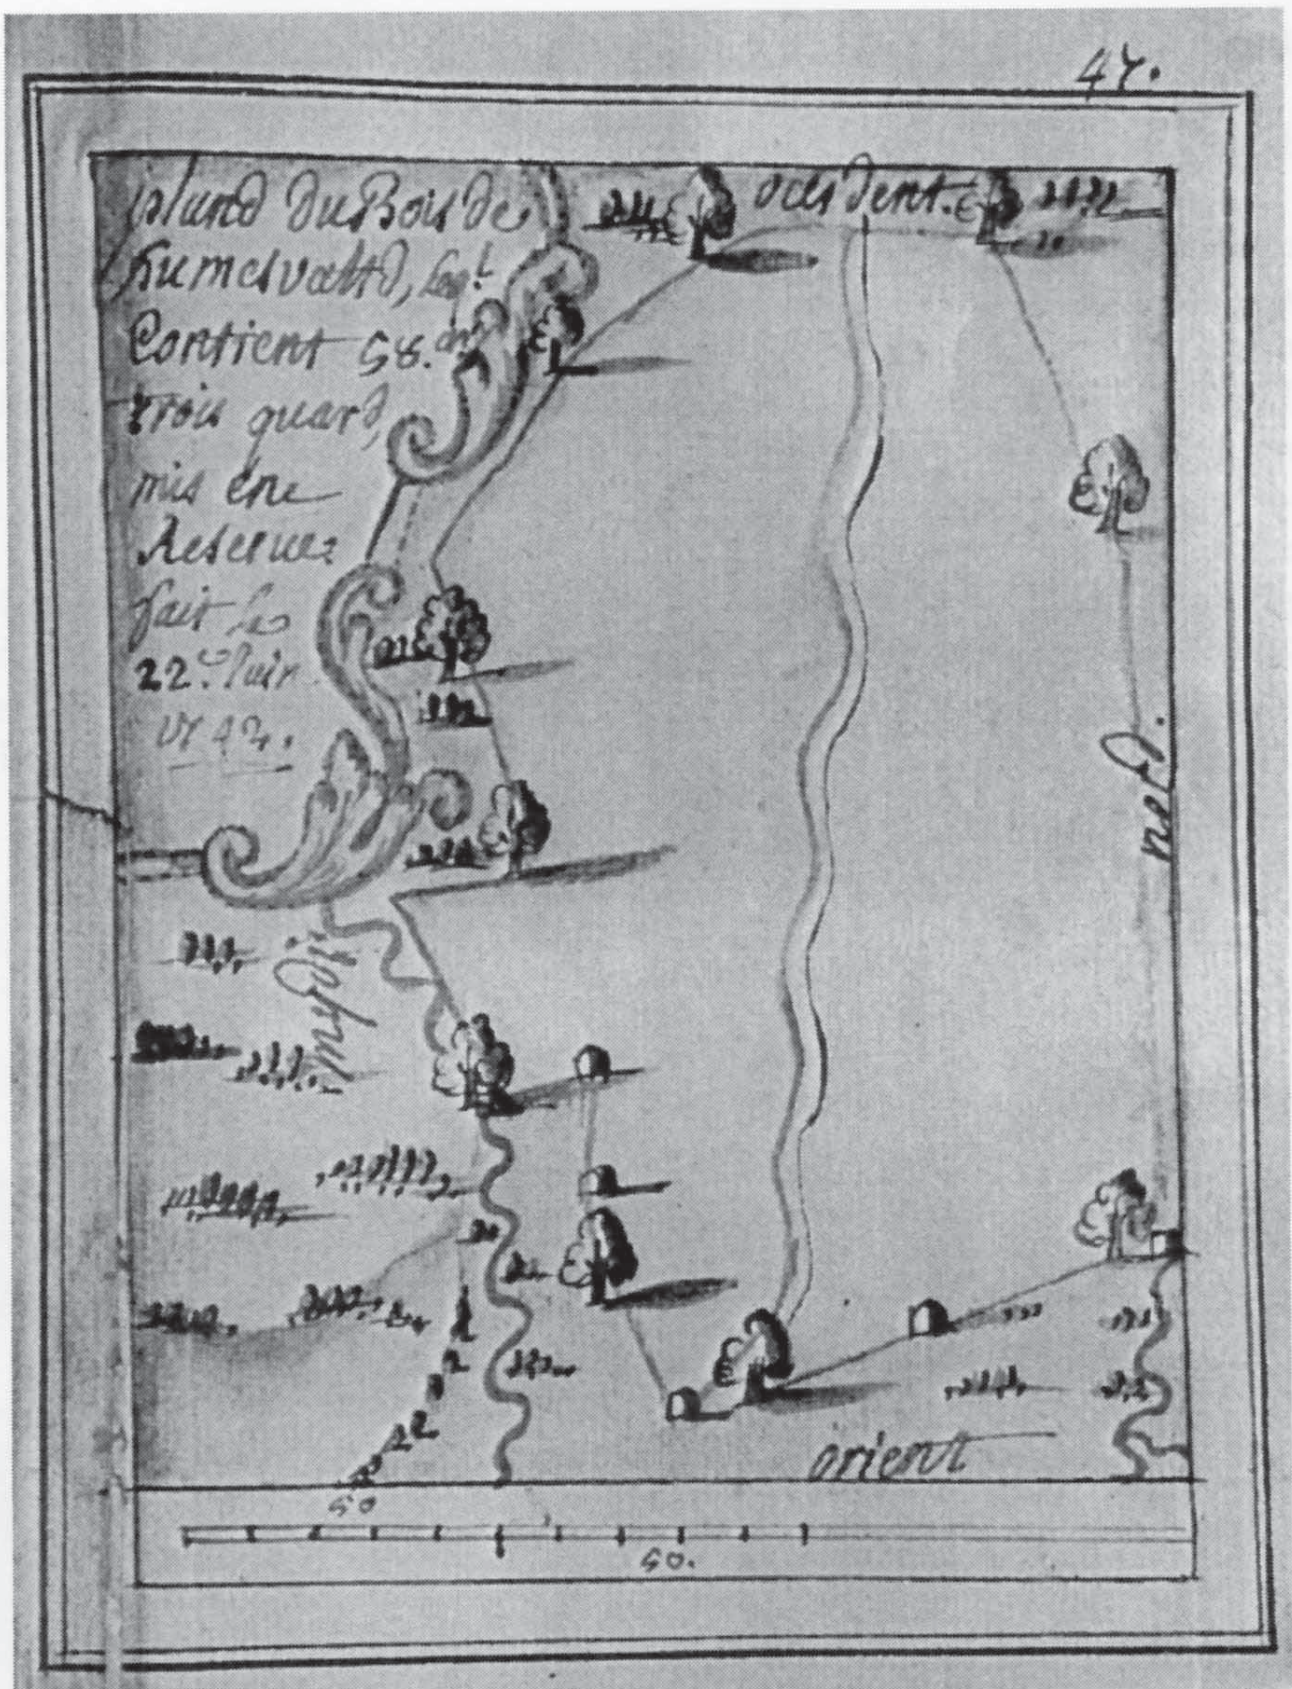 47.
pland du Bois de
humesvalltd, leql
Contient 58. ar
trois quard,
mis ene
Reseruez
fait le
22e. Juin
1742.
occident.
nord.
midy.
orient
50
50.